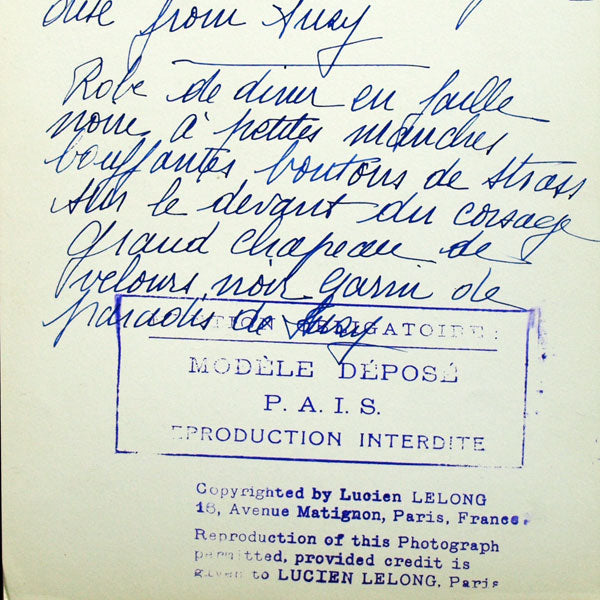 from Suzy
Robe de diner en faille
noire à petites manches
bouffantes boutons de strass
sur le devant du corsage
grand chapeau de
velours noir garni de
paradis de Suzy
MENTION OBLIGATOIRE :
MODÈLE DÉPOSÉ
P. A. I. S.
REPRODUCTION INTERDITE
Copyrighted by Lucien LELONG
16, Avenue Matignon, Paris, France.
Reproduction of this Photograph
permitted, provided credit is
given to LUCIEN LELONG, Paris